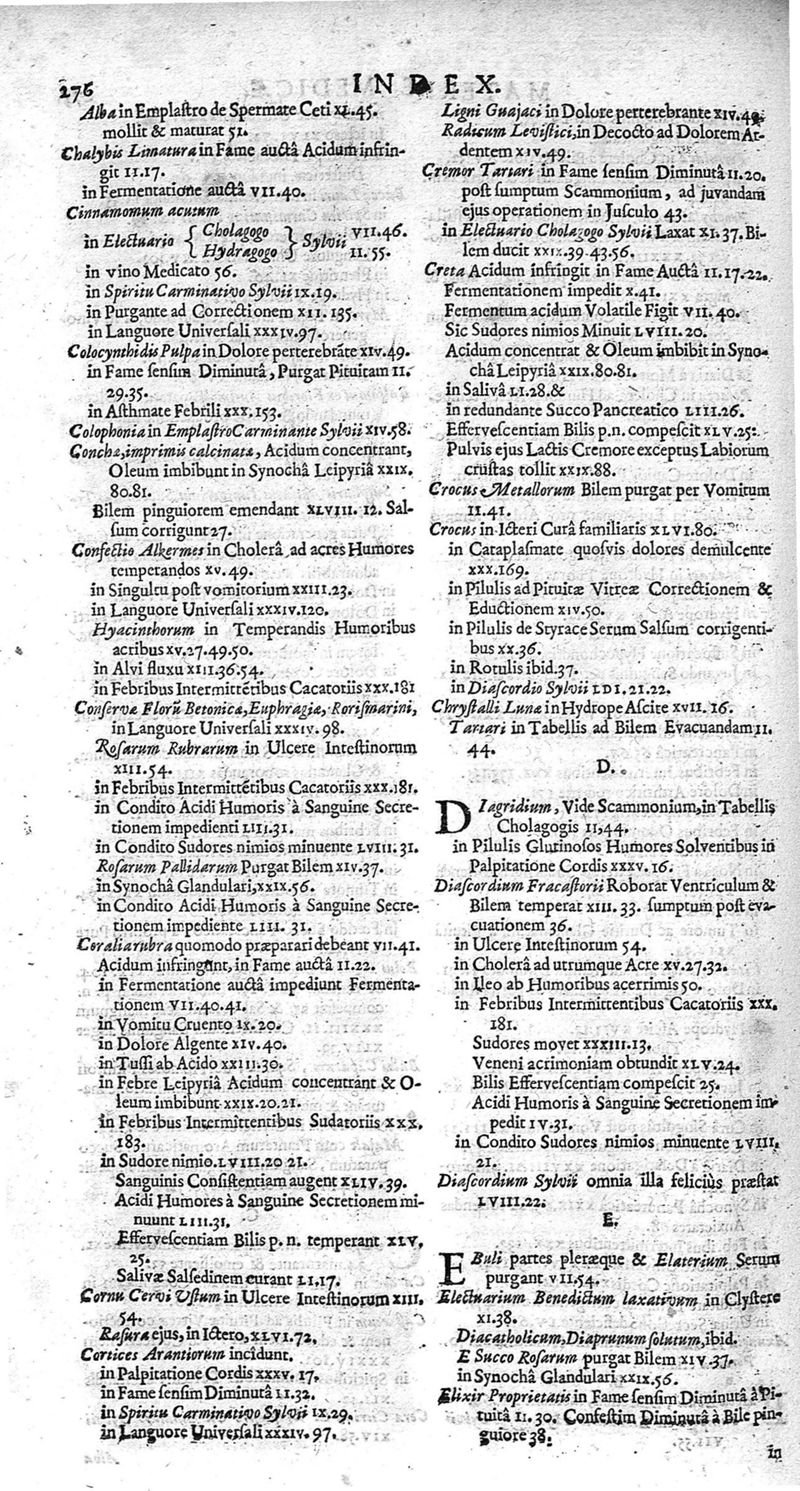 276
INDEX.
Alba in Emplaſtro de Spermate Ceti XI.45.
mollit & maturat 51.
Chalybis Limatura in Fame auctâ Acidum infrin-
git II.17.
in Fermentatione auctâ VII.40.
Cinnamomum acutum
in Electuario { Cholagogo } Sylvii VII.46.
Hydragogo II.55.
in vino Medicato 56.
in Spiritu Carminativo Sylvii IX.19.
in Purgante ad Correctionem XII.135.
in Languore Univerſali XXXIV.97.
Colocynthidis Pulpa in Dolore perterebrãte XIV.49.
in Fame ſenſim Diminutâ, Purgat Pituitam II.
29.35.
in Aſthmate Febrili XXX.153.
Colophonia in Emplaſtro Carminante Sylvii XIV.58.
Conchæ, imprimis calcinatæ, Acidum concentrant,
Oleum imbibunt in Synochâ Leipyriâ XXIX.
80.81.
Bilem pinguiorem emendant XLVIII.12. Sal-
ſum corrigunt 27.
Confectio Alkermes in Cholerâ ad acres Humores
temperandos XV.49.
in Singultu poſt vomitorium XXIII.23.
in Languore Univerſali XXXIV.120.
Hyacinthorum in Temperandis Humoribus
acribus XV.27.49.50.
in Alvi fluxu XIII.36.54.
in Febribus Intermittẽtibus Cacatoriis XXX.181
Conſervæ Florũ Betonicæ, Euphragiæ, Roriſmarini,
in Languore Univerſali XXXIV.98.
Roſarum Rubrarum in Ulcere Inteſtinorum
XIII.54.
in Febribus Intermittẽtibus Cacatoriis XXX.181.
in Condito Acidi Humoris à Sanguine Secre-
tionem impedienti LIII.31.
in Condito Sudores nimios minuente LVIII.31.
Roſarum Pallidarum Purgat Bilem XIV.37.
in Synochâ Glandulari, XXIX.56.
in Condito Acidi Humoris à Sanguine Secre-
tionem impediente LIII.31.
Coralia rubra quomodo præparari debeant VII.41.
Acidum infringunt, in Fame auctâ II.22.
in Fermentatione auctâ impediunt Fermenta-
tionem VII.40.41.
in Vomitu Cruento IX.20.
in Dolore Algente XIV.40.
in Tuſſi ab Acido XXIII.30.
in Febre Leipyriâ Acidum concentrant & O-
leum imbibunt XXIX.20.21.
in Febribus Intermittentibus Sudatoriis XXX.
183.
in Sudore nimio. LVIII.20 21.
Sanguinis Conſiſtentiam augent XLIV.39.
Acidi Humores à Sanguine Secretionem mi-
nuunt LIII.31.
Efferveſcentiam Bilis p.n. temperant XLV.
25.
Salivæ Salſedinem curant LI.17.
Cornu Cervi Uſtum in Ulcere Inteſtinorum XIII.
54.
Raſura ejus, in Ictero, XLVI.72.
Cortices Arantiorum incidunt.
in Palpitatione Cordis XXXV.17.
in Fame ſenſim Diminutâ II.32.
in Spiritu Carminativo Sylvii IX.29.
in Languore Univerſali XXXIV.97.
Ligni Guajaci in Dolore perterebrante XIV.49.
Radicum Leviſtici, in Decocto ad Dolorem Ar-
dentem XIV.49.
Cremor Tartari in Fame ſenſim Diminutâ II.20.
poſt ſumptum Scammonium, ad juvandam
ejus operationem in Juſculo 43.
in Electuario Cholagogo Sylvii Laxat XI.37. Bi-
lem ducit XXIX.39.43.56.
Creta Acidum infringit in Fame Auctâ II.17.22.
Fermentationem impedit X.41.
Fermentum acidum Volatile Figit VII.40.
Sic Sudores nimios Minuit LVIII.20.
Acidum concentrat & Oleum imbibit in Syno-
châ Leipyriâ XXIX.80.81.
in Salivâ LI.28.&
in redundante Succo Pancreatico LIII.26.
Efferveſcentiam Bilis p.n. compeſcit XLV.25.
Pulvis ejus Lactis Cremore exceptus Labiorum
cruſtas tollit XXIX.88.
Crocus Metallorum Bilem purgat per Vomitum
II.41.
Crocus in Icteri Curâ familiaris XLVI.80.
in Cataplaſmate quoſvis dolores demulcente
XXX.169.
in Pilulis ad Pituitæ Vitreæ Correctionem &
Eductionem XIV.50.
in Pilulis de Styrace Serum Salſum corrigenti-
bus XX.36.
in Rotulis ibid.37.
in Diaſcordio Sylvii LDI.21.22.
Chryſtalli Lunæ in Hydrope Aſcite XVII.16.
Tartari in Tabellis ad Bilem Evacuandam II.
44.
D.
DIagridium, Vide Scammonium, in Tabellis
Cholagogis II,44.
in Pilulis Glutinoſos Humores Solventibus in
Palpitatione Cordis XXXV.16.
Diaſcordium Fracaſtorii Roborat Ventriculum &
Bilem temperat XIII.33. ſumptum poſt eva-
cuationem 36.
in Ulcere Inteſtinorum 54.
in Cholerâ ad utrumque Acre XV.27.32.
in Ileo ab Humoribus acerrimis 50.
in Febribus Intermittentibus Cacatoriis XXX.
181.
Sudores movet XXXIII.13.
Veneni acrimoniam obtundit XLV.24.
Bilis Efferveſcentiam compeſcit 25.
Acidi Humoris à Sanguine Secretionem im-
pedit IV.31.
in Condito Sudores nimios minuente LVIII.
21.
Diaſcordium Sylvii omnia illa feliciùs præſtat
LVIII.22.
E.
EBuli partes pleræque & Elaterium Serum
purgant VII.54.
Electuarium Benedictum laxativum in Clyſtere
XI.38.
Diacatholicum, Diaprunum ſolutum, ibid.
E Succo Roſarum purgat Bilem XIV.37.
in Synochâ Glandulari XXIX.56.
Elixir Proprietatis in Fame ſenſim Diminutâ à Pi-
tuitâ II.30. Confeſtim Diminutâ à Bile pin-
guiore 38.
in